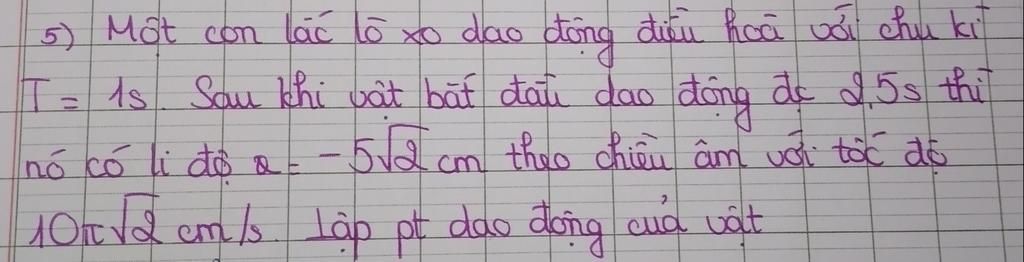 5) Một con lắc lò xo dao động điều hoà với chu kì
T = 1s. Sau khi vật bắt đầu dao động đc 2,5s thì
nó có li độ x = -5√2 cm theo chiều âm với tốc độ
10π√2 cm/s. Lập pt dao động của vật